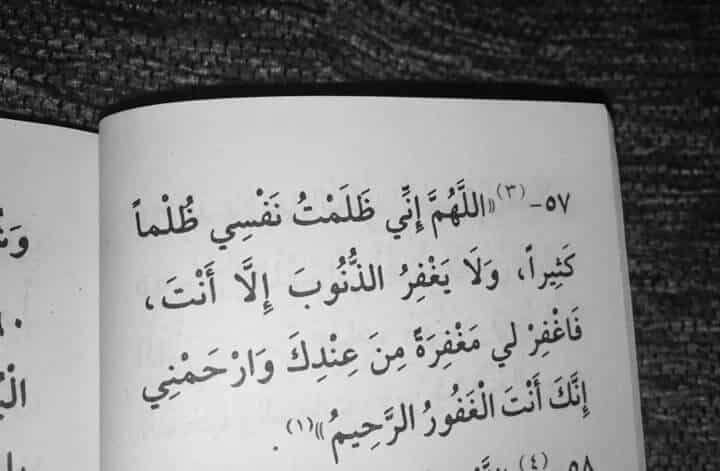 ٥٧-(٣) «اللَّهُمَّ إِنِّي ظَلَمْتُ نَفْسِي ظُلْماً
كَثِيراً، وَلَا يَغْفِرُ الذُّنُوبَ إِلَّا أَنْتَ،
فَاغْفِرْ لِي مَغْفِرَةً مِنْ عِنْدِكَ وَارْحَمْنِي
إِنَّكَ أَنْتَ الْغَفُورُ الرَّحِيمُ»(١).
٥٨-(٤)